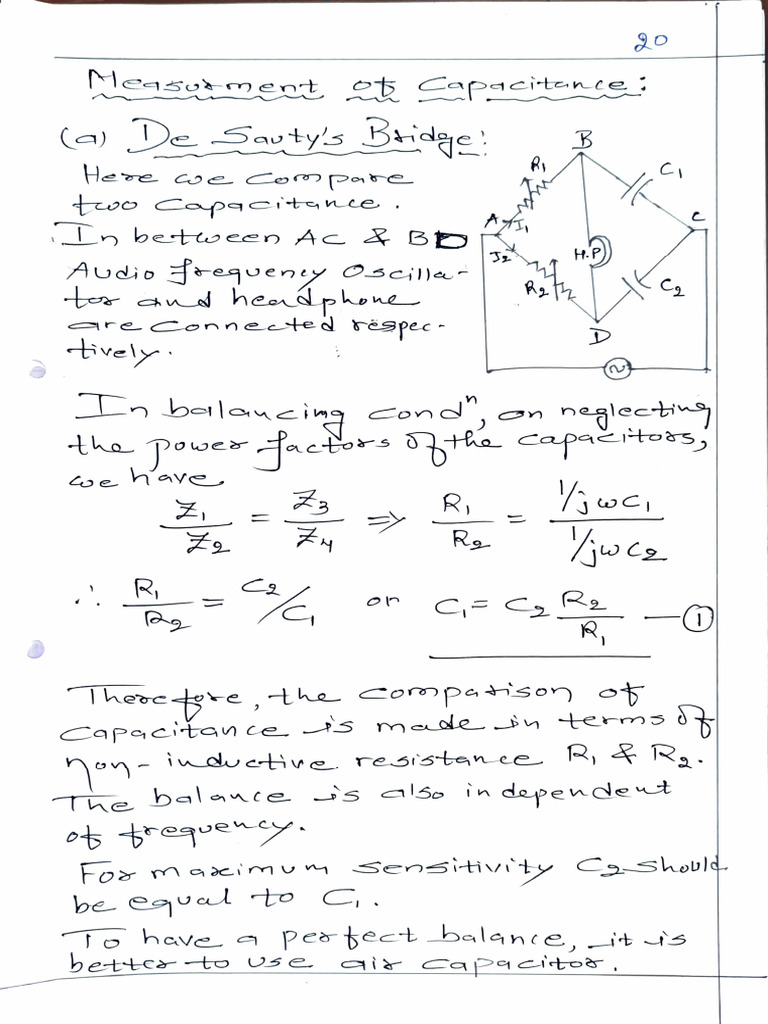 20
Measurment of Capacitance:
(a) De Sauty's Bridge:
Here we compare
two Capacitance.
In between AC & BD
Audio frequency Oscilla-
tor and headphone
are connected respec-
tively.
B
R1
C1
A
I1
C
I2
H.P
R2
C2
D
~
In balancing condn, on neglecting
the power factors of the capacitors,
we have
Z1/Z2 = Z3/Z4 => R1/R2 = (1/jωC1)/(1/jωC2)
∴ R1/R2 = C2/C1 or C1 = C2 R2/R1 — ①
Therefore, the comparison of
capacitance is made in terms of
non-inductive resistance R1 & R2.
The balance is also independent
of frequency.
For maximum sensitivity C2 should
be equal to C1.
To have a perfect balance, it is
better to use air capacitor.